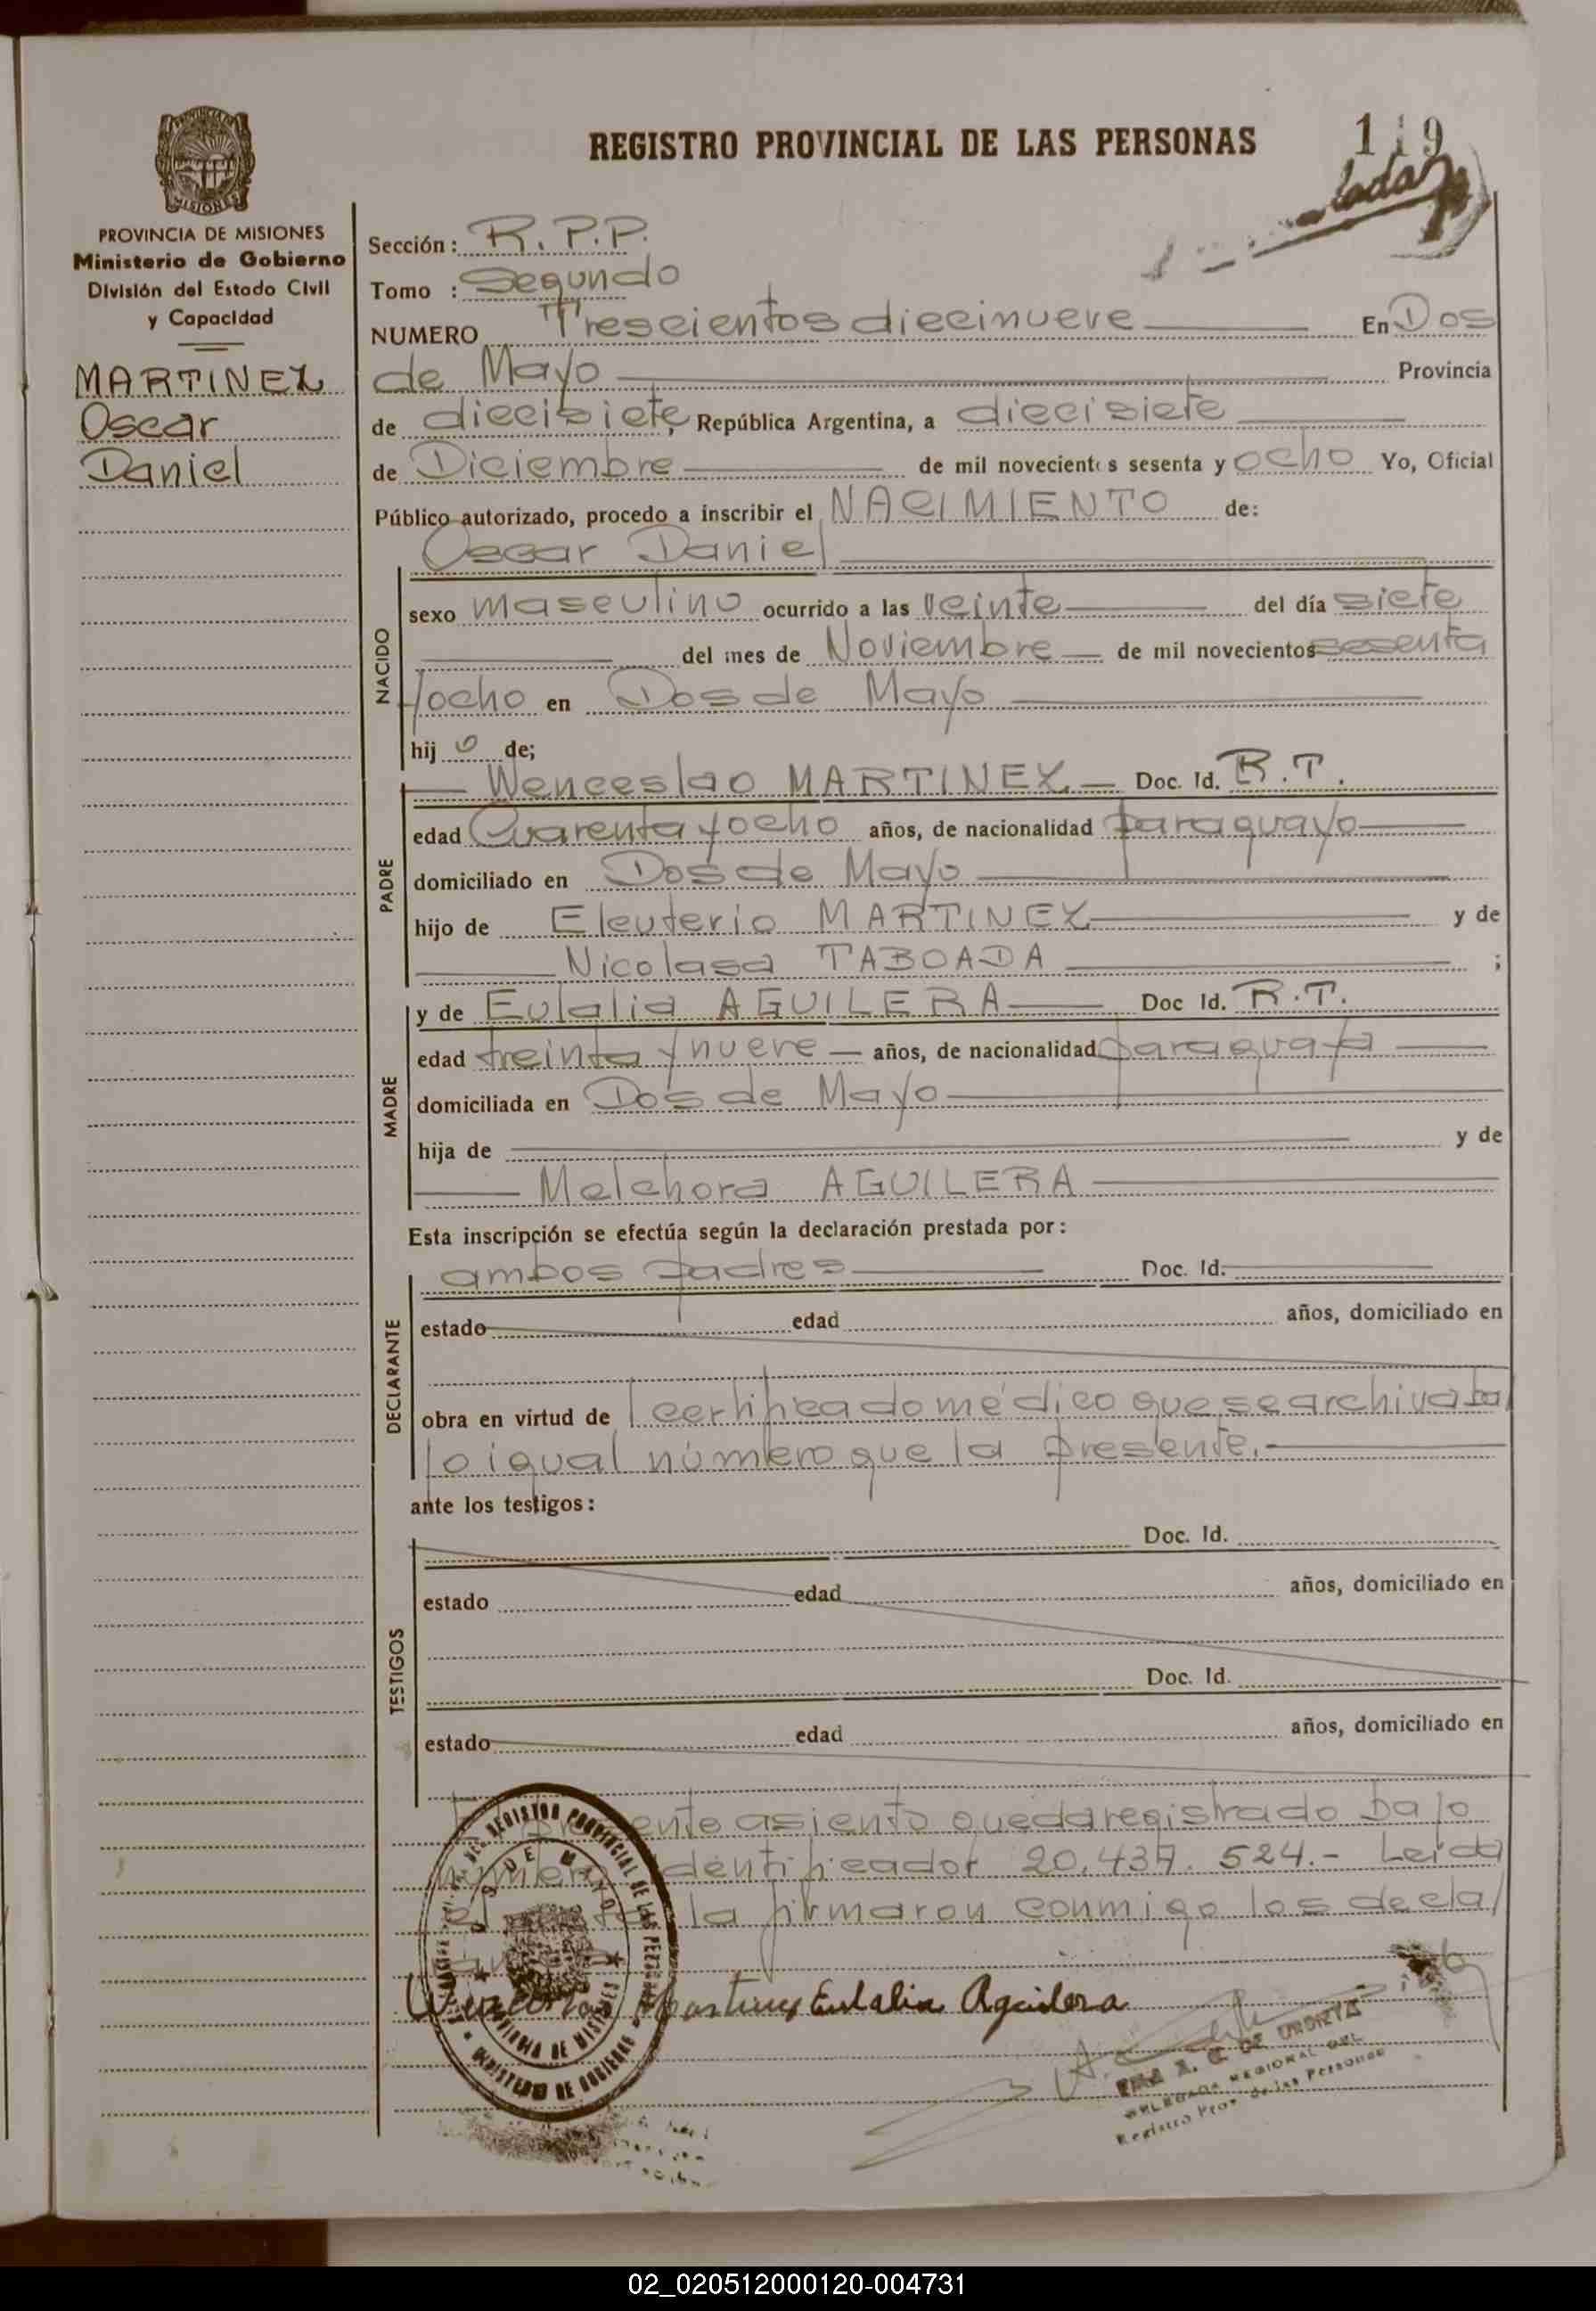 REGISTRO PROVINCIAL DE LAS PERSONAS
119
MISIONES
PROVINCIA DE MISIONES
Ministerio de Gobierno
División del Estado Civil
y Capacidad
MARTINEZ
Oscar
Daniel
Sección: R.P.P.
Tomo : Segundo
NUMERO Trescientos diecinueve En Dos
de Mayo Provincia
de diecisiete, República Argentina, a diecisiete
de Diciembre de mil novecientos sesenta y ocho Yo, Oficial
Público autorizado, procedo a inscribir el NACIMIENTO de:
Oscar Daniel
NACIDO
sexo masculino ocurrido a las veinte del día siete
del mes de Noviembre de mil novecientos sesenta
y ocho en Dos de Mayo
hij o de;
PADRE
Wenceslao MARTINEZ Doc. Id. R.T.
edad Cuarenta y ocho años, de nacionalidad paraguayo
domiciliado en Dos de Mayo
hijo de Eleuterio MARTINEZ y de
Nicolasa TABOADA ;
MADRE
y de Eulalia AGUILERA Doc Id. R.T.
edad treinta y nueve años, de nacionalidad paraguaya
domiciliada en Dos de Mayo
hija de y de
Melchora AGUILERA
Esta inscripción se efectúa según la declaración prestada por:
DECLARANTE
ambos padres Doc. Id.
estado edad años, domiciliado en
obra en virtud de l certificado médico que se archiva ba/
jo igual número que la presente.-
ante los testigos:
TESTIGOS
Doc. Id.
estado edad años, domiciliado en
Doc. Id.
estado edad años, domiciliado en
ente asiento queda registrado bajo
identificador 20.437.524.- Leída
la firmaron conmigo los decla/
Martinez Eulalia Aguilera
DE UNDRITZ
DELEGADA REGIONAL DEL
Registro Prov. de las Personas
REGISTRO PROVINCIAL DE LAS PERSONAS
DOS DE MAYO
PROVINCIA DE MISIONES
MINISTERIO DE GOBIERNO
02_020512000120-004731